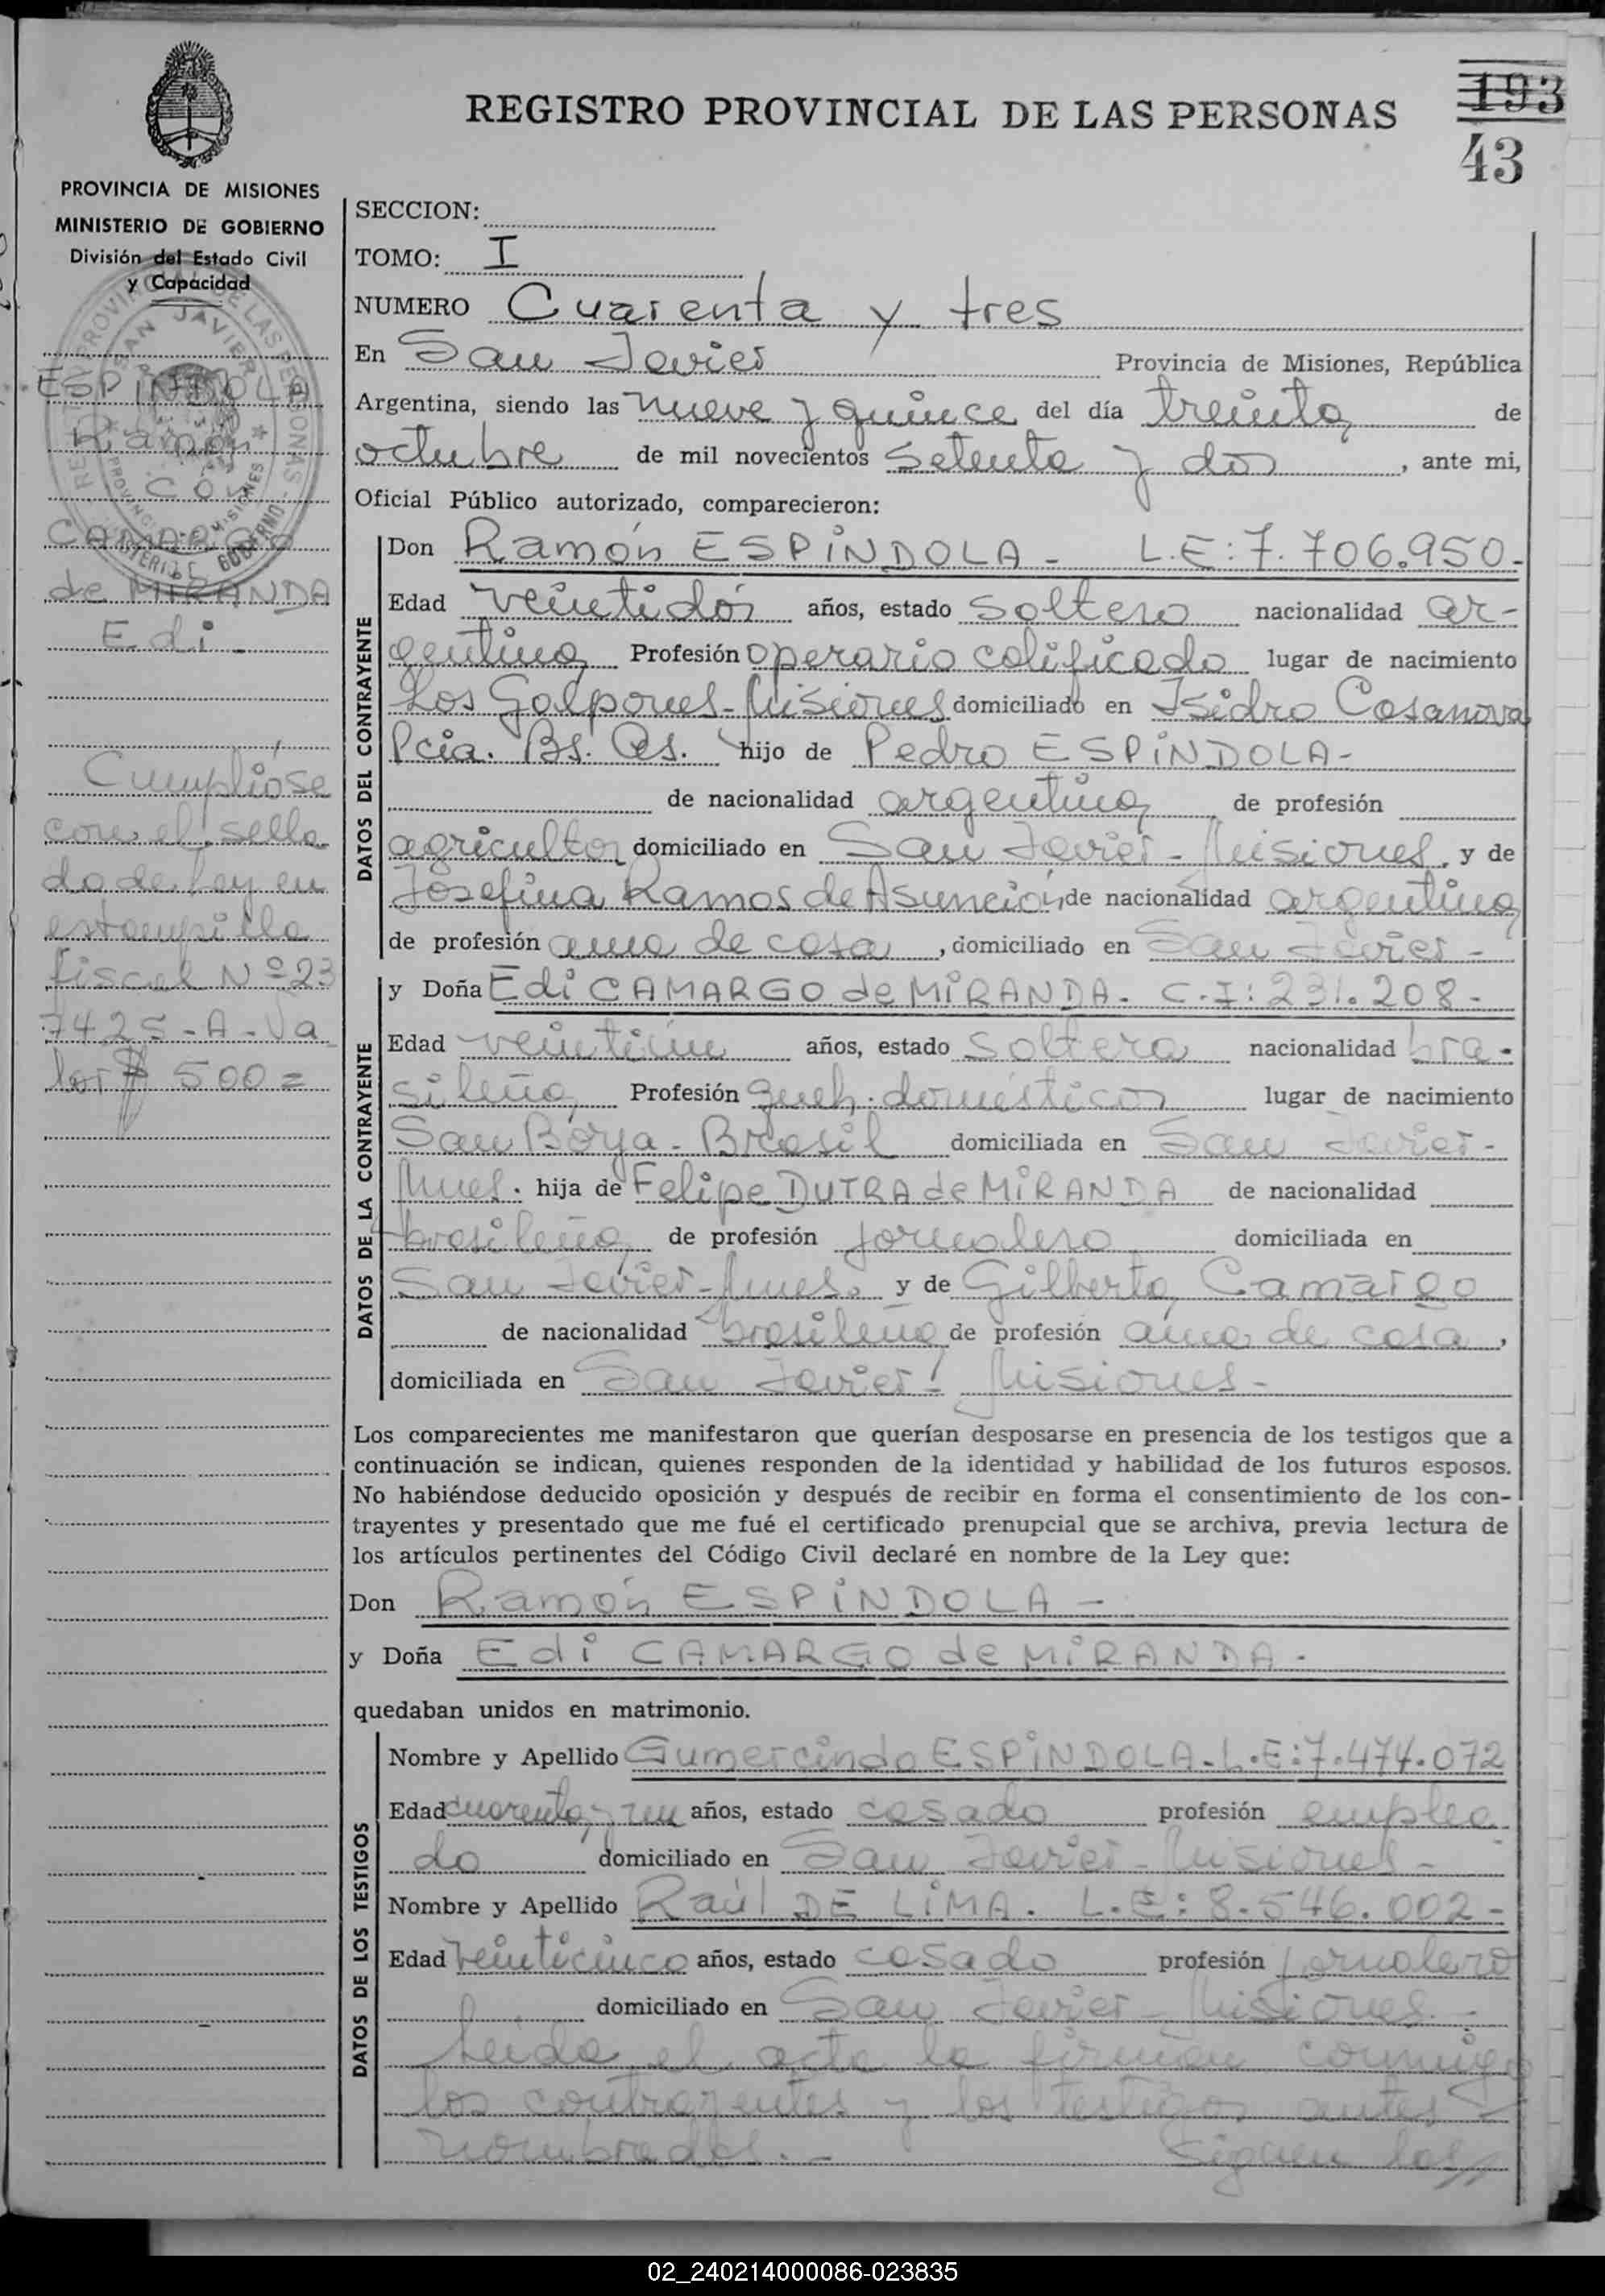 REGISTRO PROVINCIAL DE LAS PERSONAS
193
43
PROVINCIA DE MISIONES
MINISTERIO DE GOBIERNO
División del Estado Civil
y Capacidad
ESPíNDOLA
Ramón
con
CAMARGO
de MIRANDA
Edi -
Cumplióse
con el sella
do de ley en
estampilla
fiscal Nº 23
7425 - A - Va
lor $ 500 =
SECCION:
TOMO: I
NUMERO Cuarenta y tres
En San Javier Provincia de Misiones, República
Argentina, siendo las nueve y quince del día treinta de
octubre de mil novecientos setenta y dos, ante mi,
Oficial Público autorizado, comparecieron:
DATOS DEL CONTRAYENTE
Don Ramón ESPíNDOLA - L.E: 7.706.950.-
Edad veintidós años, estado soltero nacionalidad ar-
gentina Profesión operario calificado lugar de nacimiento
Los Galpones - Misiones domiciliado en Isidro Casanova
Pcia. Bs. As. hijo de Pedro ESPíNDOLA -
de nacionalidad argentina de profesión
agricultor domiciliado en San Javier - Misiones, y de
Josefina Ramos de Asunción, de nacionalidad argentina
de profesión ama de casa, domiciliado en San Javier -
DATOS DE LA CONTRAYENTE
y Doña Edi CAMARGO de MiRANDA. C.I: 231.208 -
Edad veintiún años, estado soltera nacionalidad bra-
sileña Profesión queh. domésticos lugar de nacimiento
San Borja - Brasil domiciliada en San Javier -
Mnes. hija de Felipe DUTRA de MiRANDA de nacionalidad
brasileña de profesión jornalero domiciliada en
San Javier - Mnes. y de Gilberta Camargo
de nacionalidad brasileña de profesión ama de casa,
domiciliada en San Javier - Misiones -
Los comparecientes me manifestaron que querían desposarse en presencia de los testigos que a
continuación se indican, quienes responden de la identidad y habilidad de los futuros esposos.
No habiéndose deducido oposición y después de recibir en forma el consentimiento de los con-
trayentes y presentado que me fué el certificado prenupcial que se archiva, previa lectura de
los artículos pertinentes del Código Civil declaré en nombre de la Ley que:
Don Ramón ESPíNDOLA -
y Doña Edi CAMARGO de MiRANDA -
quedaban unidos en matrimonio.
DATOS DE LOS TESTIGOS
Nombre y Apellido Gumercindo ESPiNDOLA - L.E: 7.474.072
Edad cuarenta y un años, estado casado profesión emplea
do domiciliado en San Javier - Misiones -
Nombre y Apellido Raúl DE LiMA. L.E: 8.546.002 -
Edad veinticinco años, estado casado profesión jornalero
domiciliado en San Javier - Misiones -
Leida el acta la firman conmigo
los contrayentes y los testigos antes
nombrados. - Siguen las//
02_240214000086-023835